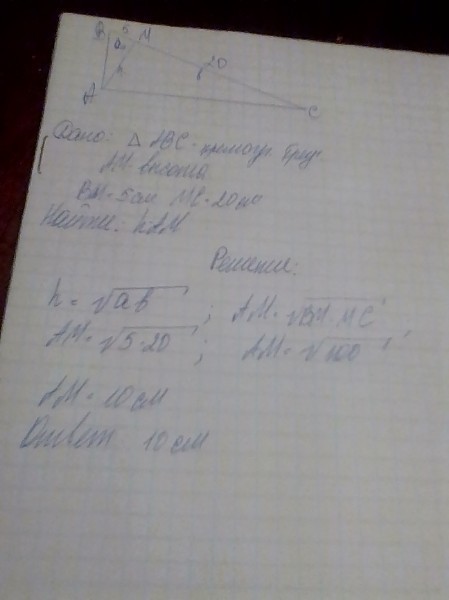 B 5 M
a
h
20
A
C
Дано: △ ABC - прямоуг. треуг.
AM высота
BM = 5 см MC = 20 см
Найти: h AM
Решение:
h = √ab ; AM = √BM · MC ;
AM = √5·20 ; AM = √100
AM = 10 см
Ответ 10 см